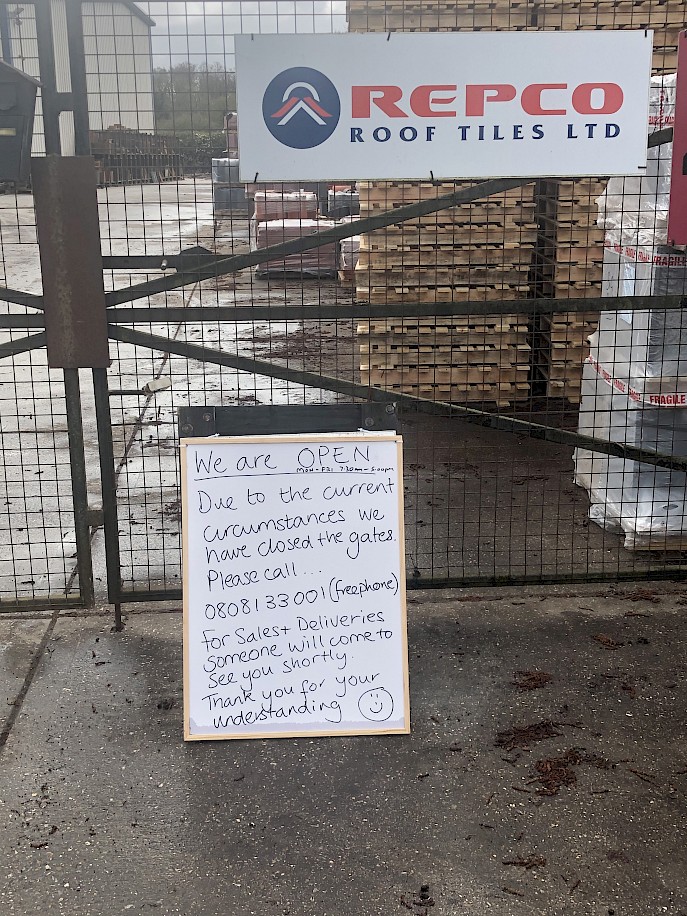 REPCO
ROOF TILES LTD
FRAGILE
FRAGILE
We are OPEN
MON - FRI 7:30am - 5:00pm
Due to the current
circumstances we
have closed the gates.
Please call ...
0808133001 (freephone)
for Sales + Deliveries
Someone will come to
see you shortly.
Thank you for your
understanding